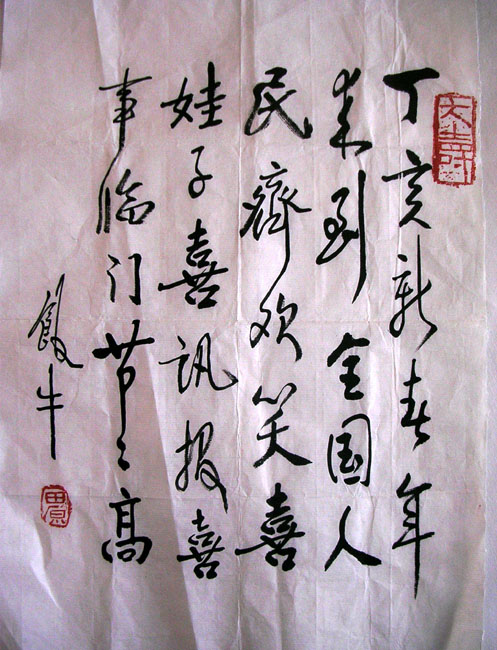 丁亥新春年
来到全国人
民齊欢笑喜
娃子喜訊报喜
事临门节々高
牛